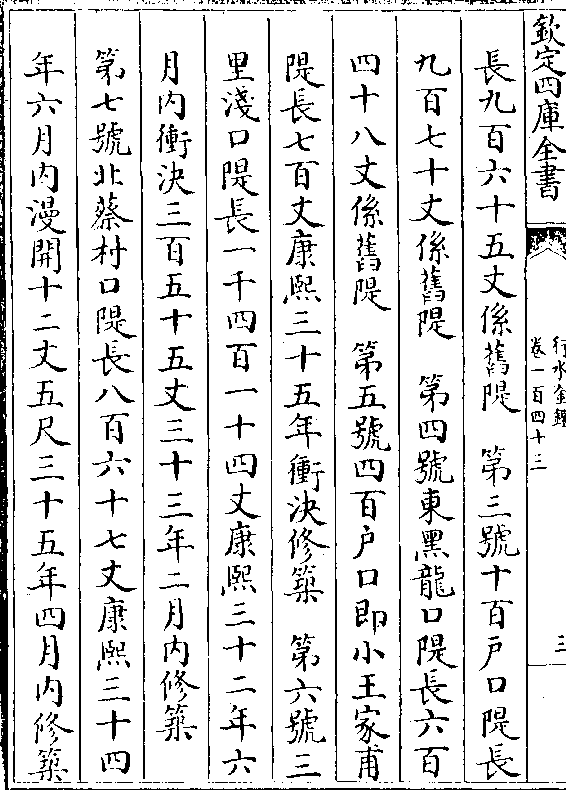 欽定四庫全書
行水金鑑
卷一百四十三
三
長九百六十五丈係舊隄　第三號十百戸口隄長
九百七十丈係舊隄　第四號東黑龍口隄長六百
四十八丈係舊隄　第五號四百户口即小王家甫
隄長七百丈康熙三十五年衝決修築　第六號三
里淺口隄長一千四百一十四丈康熙三十二年六
月内衝決三百五十五丈三十三年二月内修築
第七號北蔡村口隄長八百六十七丈康熙三十四
年六月内漫開十二丈五尺三十五年四月内修築